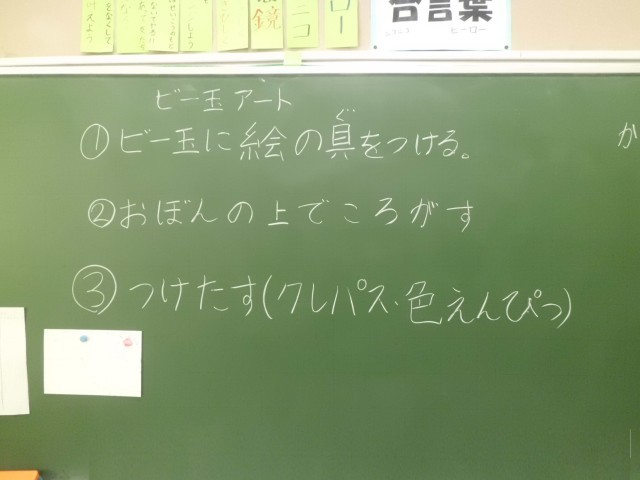 合言葉
ニコニコ ヒーロー
ビー玉アート
①ビー玉に絵の具をつける。
ぐ
②おぼんの上でころがす
③つけたす(クレパス・色えんぴつ)
か